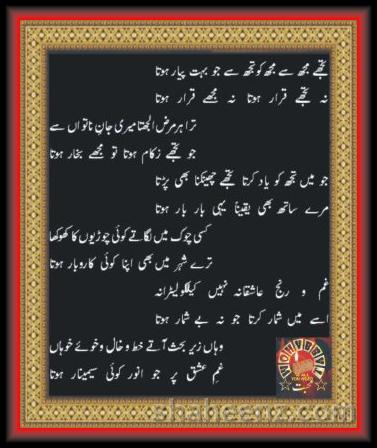 تجھے مجھ سے مجھ کو تجھ سے جو بہت پیار ہوتا
نہ تجھے قرار ہوتا نہ مجھے قرار ہوتا
ترا ہر مرض الجھتا میری جانِ ناتواں سے
جو تجھے زکام ہوتا تو مجھے بخار ہوتا
جو میں تجھ کو یاد کرتا تجھے چھینکنا بھی پڑتا
مرے ساتھ بھی یقیناً یہی بار بار ہوتا
کسی چوک میں لگاتے کوئی چوڑیوں کا کھوکھا
ترے شہر میں بھی اپنا کوئی کاروبار ہوتا
غم و رنج عاشقانہ نہیں کیلکولیٹرانہ
اسے میں شمار کرتا جو نہ بے شمار ہوتا
وہاں زیرِ بحث آتے خط و خال و خوئے خوباں
غمِ عشق پر جو انور کوئی سیمینار ہوتا
shaheenz.com